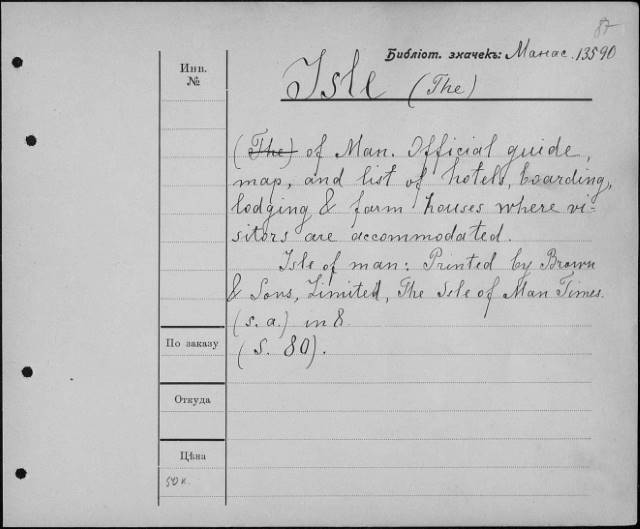 87
Библіот. значекъ: Манас. 13590
Инв. №
Isle (The)
(The) of Man. Official guide,
map, and list of hotels, boarding,
lodging & farm houses where vi-
sitors are accommodated.
Isle of man: Printed by Brown
& Sons, Limited, The Isle of Man Times.
(s. a.) in 8.
По заказу
(S. 80).
Откуда
Цѣна
50 к.